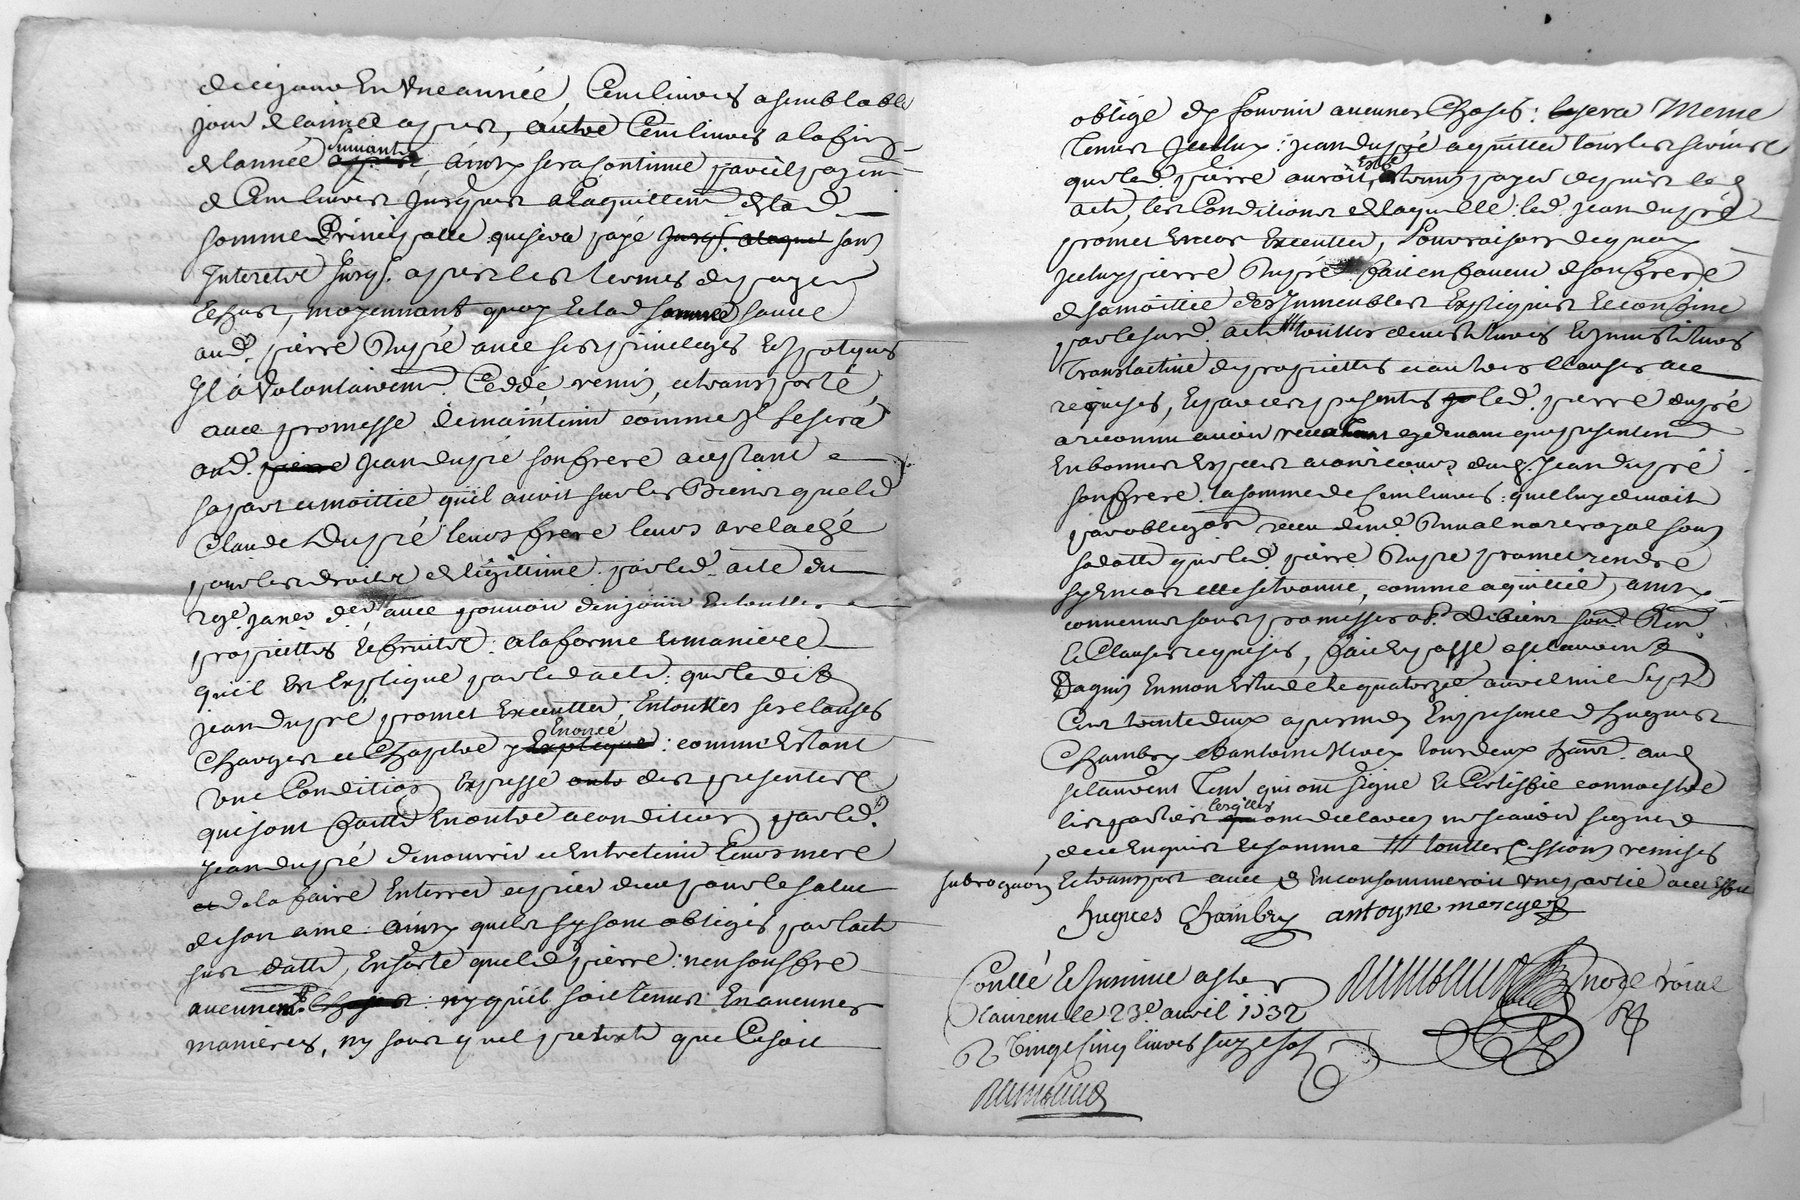 dicy jour En Une année, Cent livres a semblable
jour de lannée apres, autre Cent livres a la fin
de lannée suivante, Ainsy sera Continué pareil payem.
de Cent livres Jusques a laquittem. de lad.
somme Principalle qui sera payé Jusq. alaquit sans
Interetz Jusq. apres les termes de payer
Echus, moyennant quoy Et lad somme sauve
aud. pierre Dupré avec ses privileges Et ypoteques
Il à Volontairem. Ceddé remis, et transporté,
avec promesse de maintenir comme Il se sera
aud. pierre Jean dupré son frere acceptant
sa part et moittié quil avoit sur les Biens que led
Claude Dupré leurs frere leurs a relaché
pour les droits de legittime par led. acte du
janer der avec pouvoir den jouir En touttes
proprietties Et fruits : a la forme Et maniere
quil Est Expliqué par led acte : que ledit
jean dupré promet Executter En touttes ses clauses
Charges et Chapitre y Enoncé Expliqué : comme Estant
Une Condition Expresse des presentes
qui sont faitte En outre a condition par led.
Jean dupré de nourrir et Entretenir Leurs mere
et de la faire Enterrer et prier dieu pour le salut
de son ame : Ainsy quels sy sont obligés par lacte
sus datté, En sorte que led pierre : nen souffre
aucunem. Choses : ny quil soit tenus En aucunes
manieres, ny sous quel pretexte que Ce soit
obligé dy fournir aucunes Choses : Et sera Meme
Tenus Jceluy : jean dupré acquitter tous les servis
que led. pierre auroit Esté tenus payer depuis led
acte, les Conditions de laquelle led. jean dupré
promet Encor Executter, Pour raison de quoy
Jceluy pierre Dupré fait en faveur de son frere
de sa moittié des Immeubles Expliqués Et confiné
par le susd. acte touttes devestitures Et Investitures
Translative de proprietties et autres Clauses a ce
requises, Et par ces presentes led. pierre dupré
a reconnu avoir receu cy devant que presentem.
En bonnes Especes ayant cours dud. Jean dupré
son frere la somme de Cent livres : que luy devoit
par obligaon receu de me. Dunal nore royal sous
sa datte que led. pierre Dupré promet rendre
sy Encor elle se trouve, comme aquittée, ainsy
convenus sous promesses ob. de biens soub. Ren.
Et Clauses requises, fait Et passé a st laurent
Daguy En mon Estude le quatorze avril mil sept
Cent trente deux apres midy En presence de hugues
Chambry et dantoine Mercy tous deux habit. aud
st laurent Tem. qui ont signé Et Certiffié connoestre
les parties lesqlles qui ont declarees ne scavoir signer
de ce Enquis Et somme touttes Cessions remises
subrogaon Et transport avec
hugues Chambry antoyne mercyer
Contlé Et Insinué a st
laurent le 23e. avril 1732
R Vingt Cinq livres
nore roial